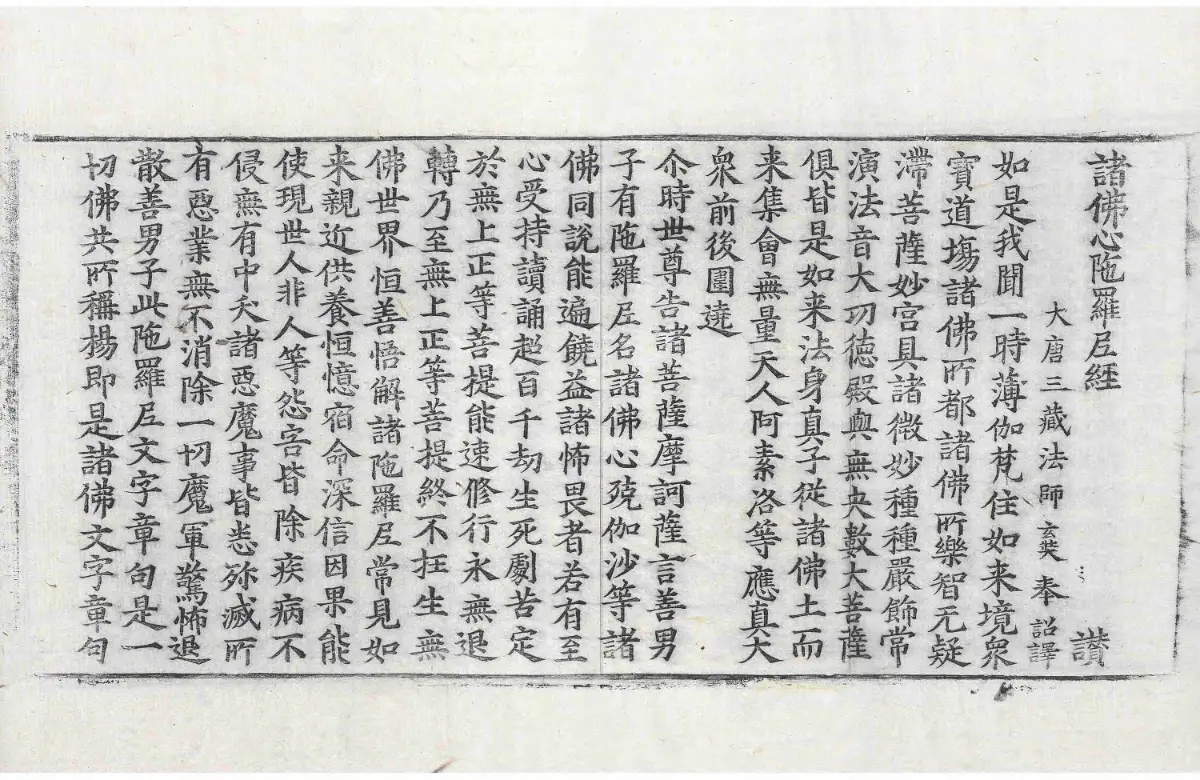 諸佛心陁羅𡰱經 讃
大唐三藏法師玄奘奉 詔譯
如是我聞一時薄伽梵住如来境衆
寶道塲諸佛所都諸佛所樂智无疑
滯菩薩妙宮具諸微妙種種嚴飾常
演法音大功德殿與無央數大菩薩
俱皆是如来法身真子從諸佛土而
来集會無量天人阿素洛等應真大
衆前後圍遶
尒時世尊告諸菩薩摩訶薩言善男
子有陁羅𡰱名諸佛心殑伽沙等諸
佛同說能遍饒益諸怖畏者若有至
心受持讀誦超百千劫生死劇苦定
於無上正等菩提能速修行永無退
轉乃至無上正等菩提終不抂生無
佛世界恒善悟解諸陁羅𡰱常見如
来親近供養恒憶宿命深信因果能
使現世人非人等怨害皆除疾病不
侵無有中夭諸悪魔事皆悉殄滅所
有悪業無不消除一切魔軍驚怖退
散善男子此陁羅𡰱文字章句是一
切佛共所稱揚即是諸佛文字章句